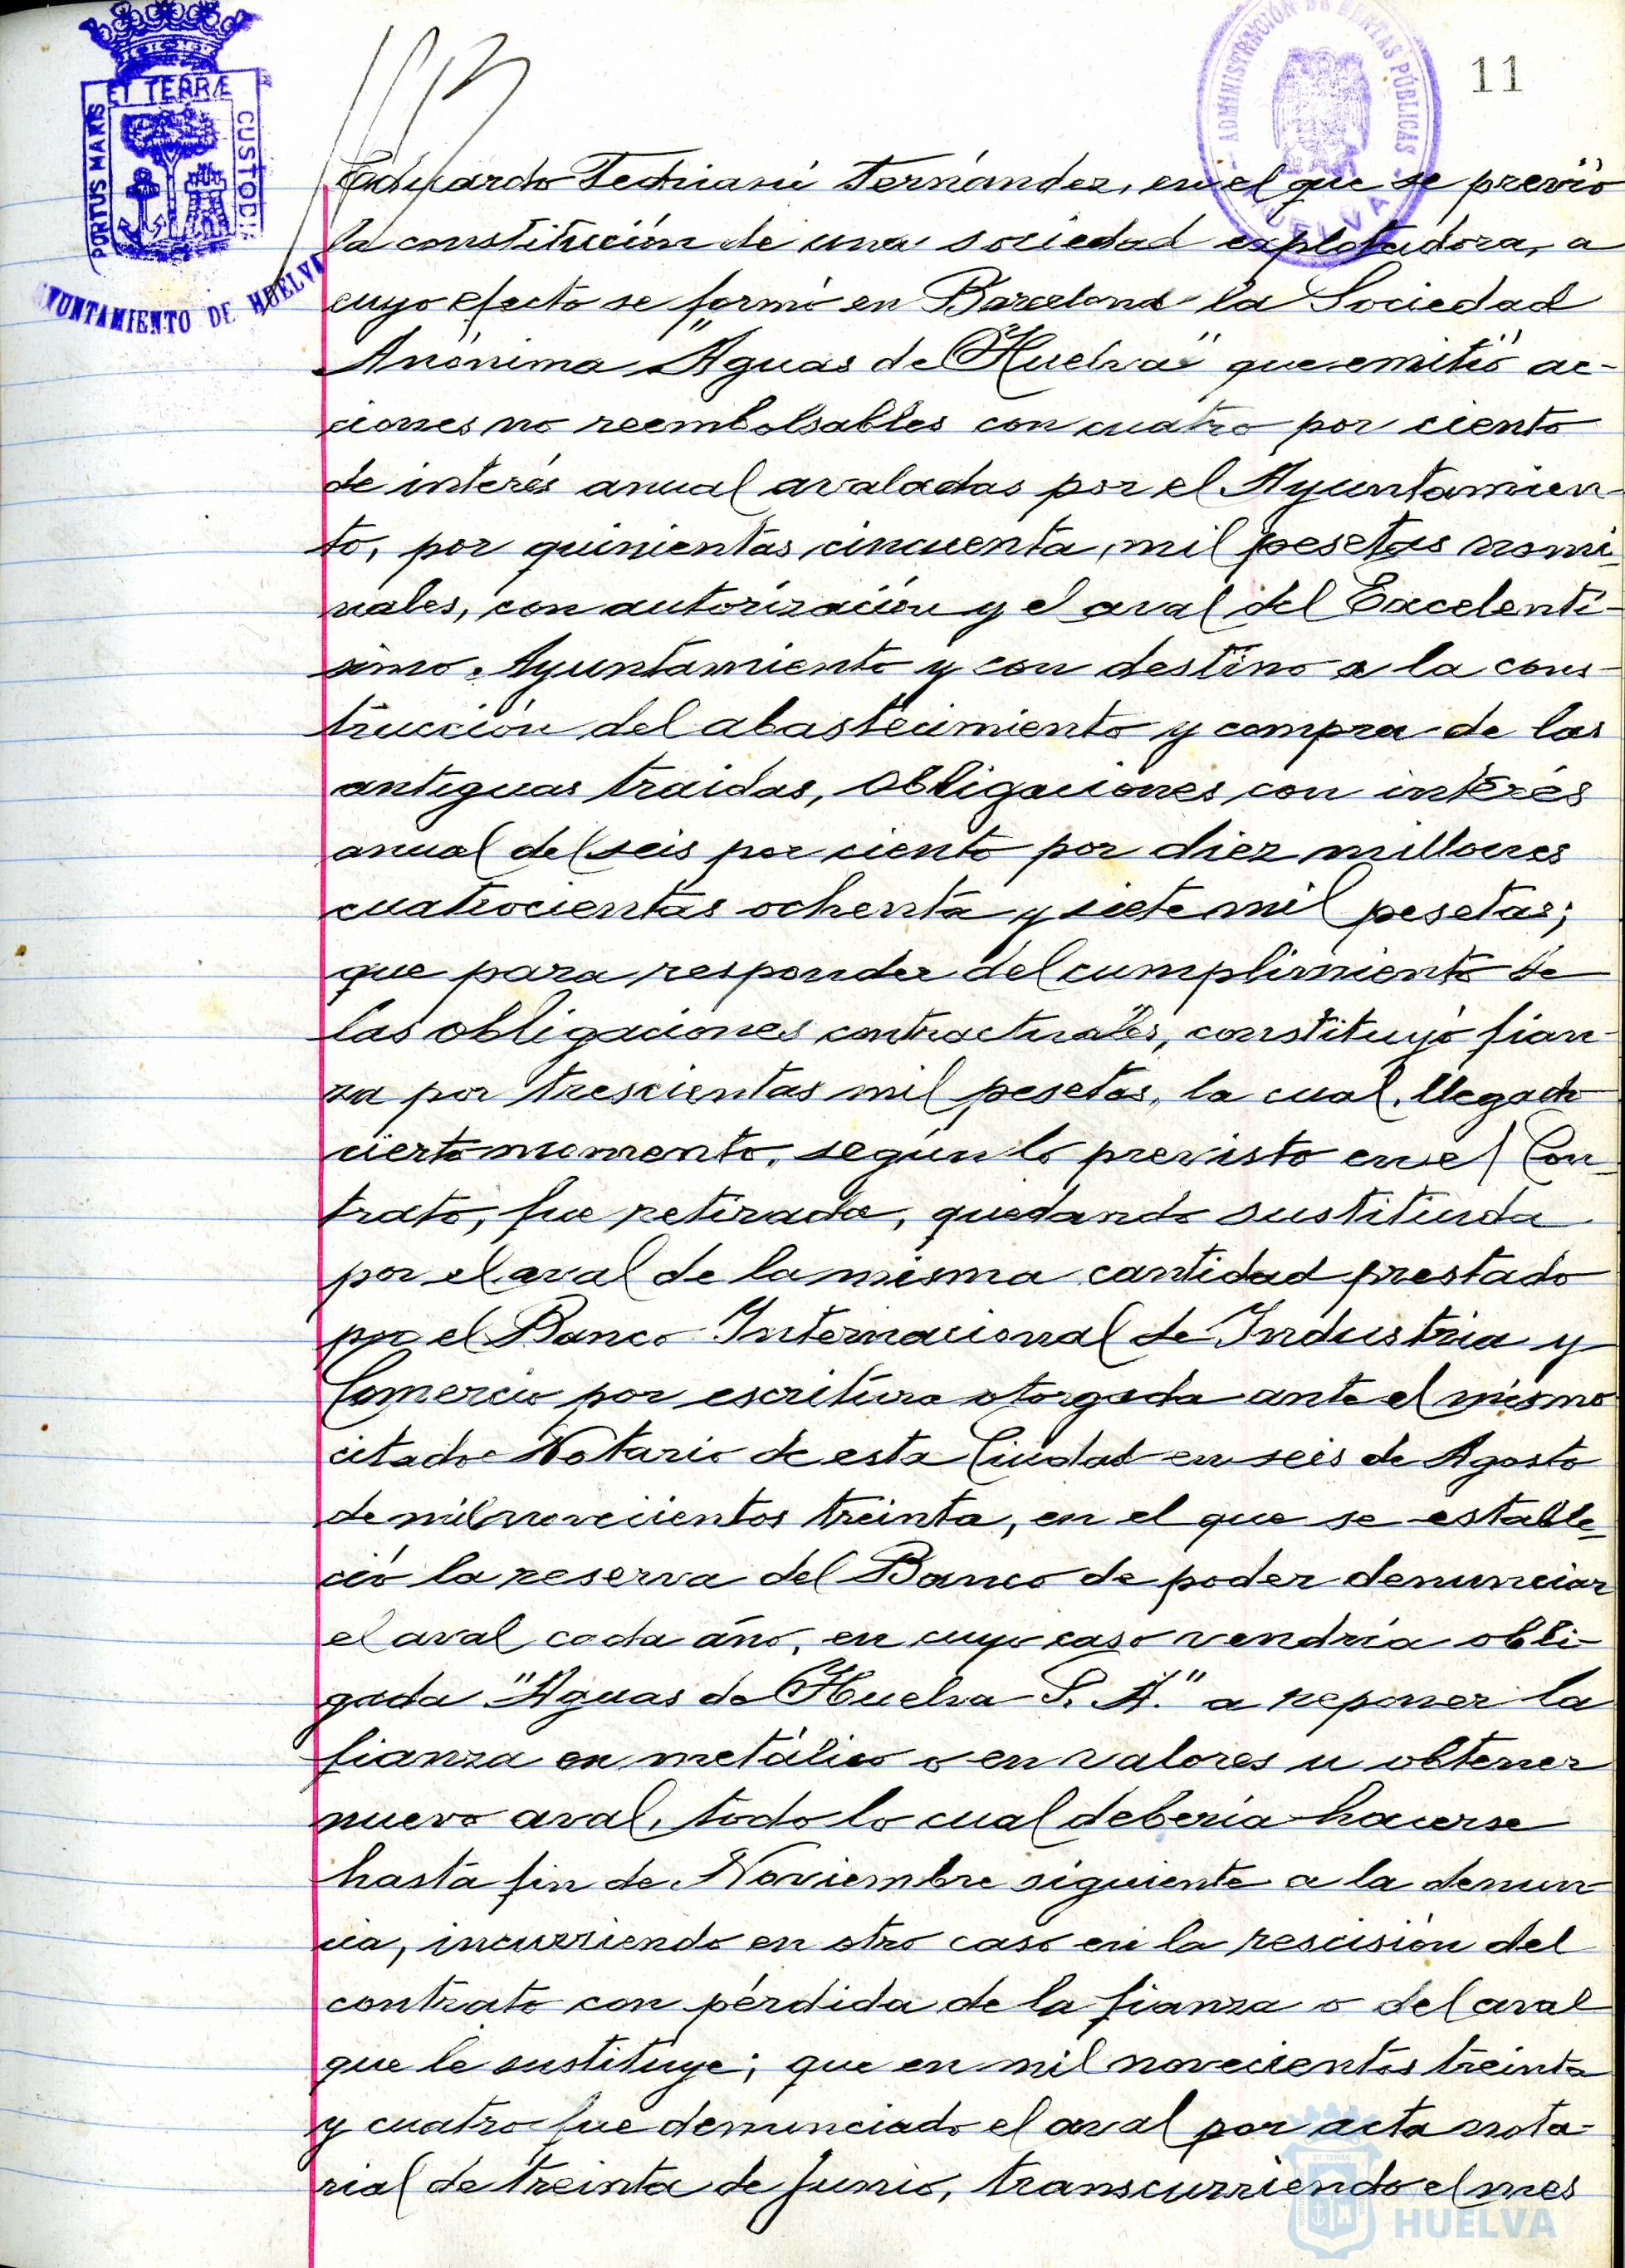 ADMINISTRACIÓN DE RENTAS PÚBLICAS
HUELVA
11
PORTUS MARIS ET TERRÆ CUSTODIA
AYUNTAMIENTO DE HUELVA
Eduardo Fernández, en el que se previó
la constitución de una sociedad explotadora, a
cuyo efecto se formó en Barcelona la Sociedad
Anónima "Aguas de Huelva" que emitió ac-
ciones no reembolsables con cuatro por ciento
de interés anual avaladas por el Ayuntamien-
to, por quinientas cincuenta mil pesetas nomi-
nales, con autorización y el aval del Excelentí-
simo Ayuntamiento y con destino a la cons-
trucción del abastecimiento y compra de las
antiguas traidas, obligaciones con interés
anual del seis por ciento por diez millones
cuatrocientas ochenta y siete mil pesetas;
que para responder del cumplimiento de
las obligaciones contractuales, constituyó fian-
za por trescientas mil pesetas, la cual, llegado
cierto momento, según lo previsto en el Con-
trato, fue retirada, quedando sustituida
por el aval de la misma cantidad prestado
por el Banco Internacional de Industria y
Comercio por escritura otorgada ante el mismo
citado Notario de esta Ciudad en seis de Agosto
de mil novecientos treinta, en el que se estable-
ció la reserva del Banco de poder denunciar
el aval cada año, en cuyo caso vendría obli-
gada "Aguas de Huelva S. A." a reponer la
fianza en metálico o en valores u obtener
nuevo aval, todo lo cual debería hacerse
hasta fin de Noviembre siguiente a la denun-
cia, incurriendo en otro caso en la rescisión del
contrato con pérdida de la fianza o del aval
que le sustituye; que en mil novecientos treinta
y cuatro fue denunciado el aval por acta nota-
rial de treinta de Junio, transcurriendo el mes
HUELVA